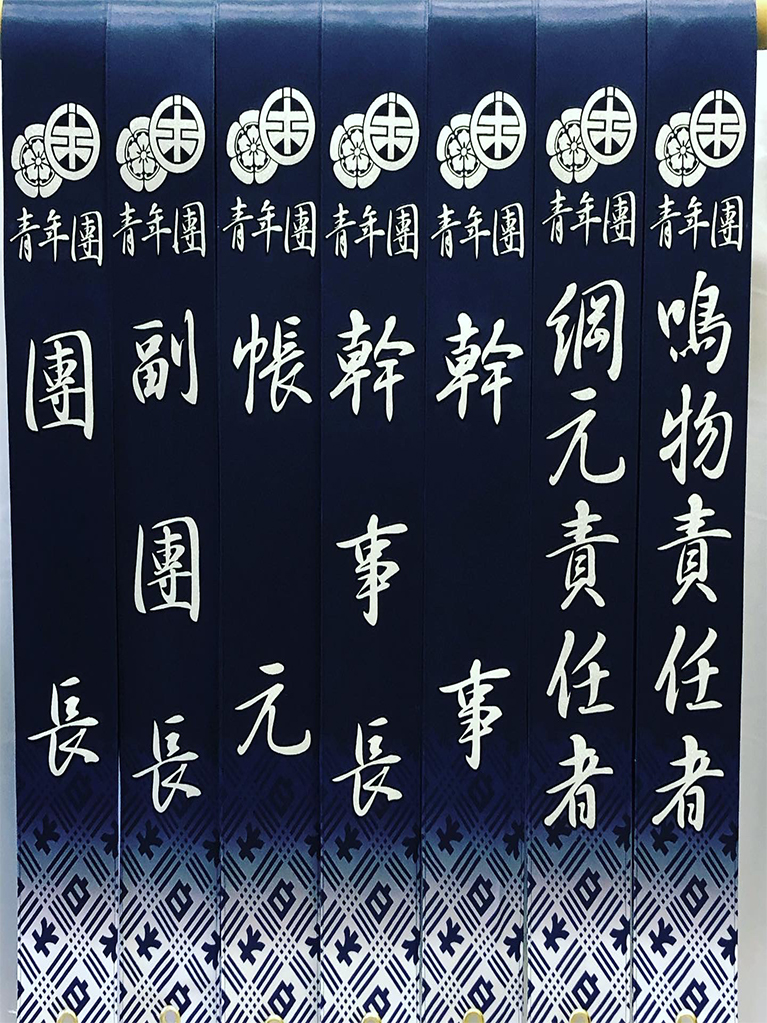 青年團
鳴物責任者
青年團
綱元責任者
青年團
幹事
青年團
幹事長
青年團
帳元
青年團
副團長
青年團
團長